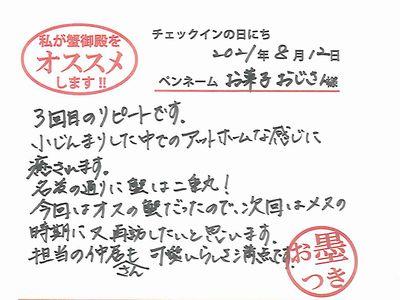 私が蟹御殿を
オススメ
します!!
チェックインの日にち
2021年8月12日
ペンネーム お菓子おじさん様
3回目のリピートです。
小じんまりした中でのアットホームな感じに
癒されます。
名前の通りに蟹は二重丸!
今回はオスの蟹だったので、次回はメスの
時期に又再訪したいと思います。
担当の仲居さんも可愛いらしさ満点です。
お墨
つき